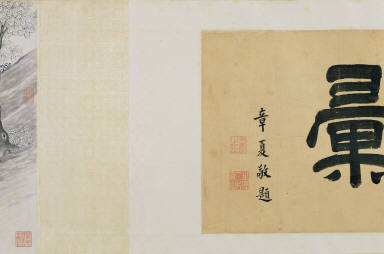 彙
章夏敬題